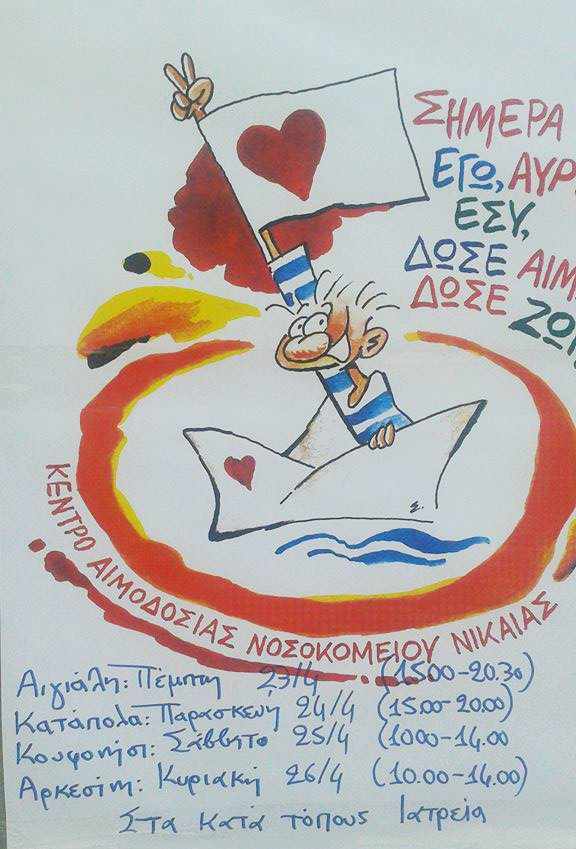 ΣΗΜΕΡΑ
ΕΓΩ, ΑΥΡ
ΕΣΥ,
ΔΩΣΕ ΑΙΜ
ΔΩΣΕ ΖΩ
ΚΕΝΤΡΟ ΑΙΜΟΔΟΣΙΑΣ ΝΟΣΟΚΟΜΕΙΟΥ ΝΙΚΑΙΑΣ
Αιγιάλη: Πέμπτη 23/4 (15.00-20.30)
Κατάπολα: Παρασκευή 24/4 (15.00-20.00)
Κουφονήσι: Σάββατο 25/4 (1000-14.00
Αρκεσίνη: Κυριακή 26/4 (10.00-14.00)
Στα κατά τόπους Ιατρεία